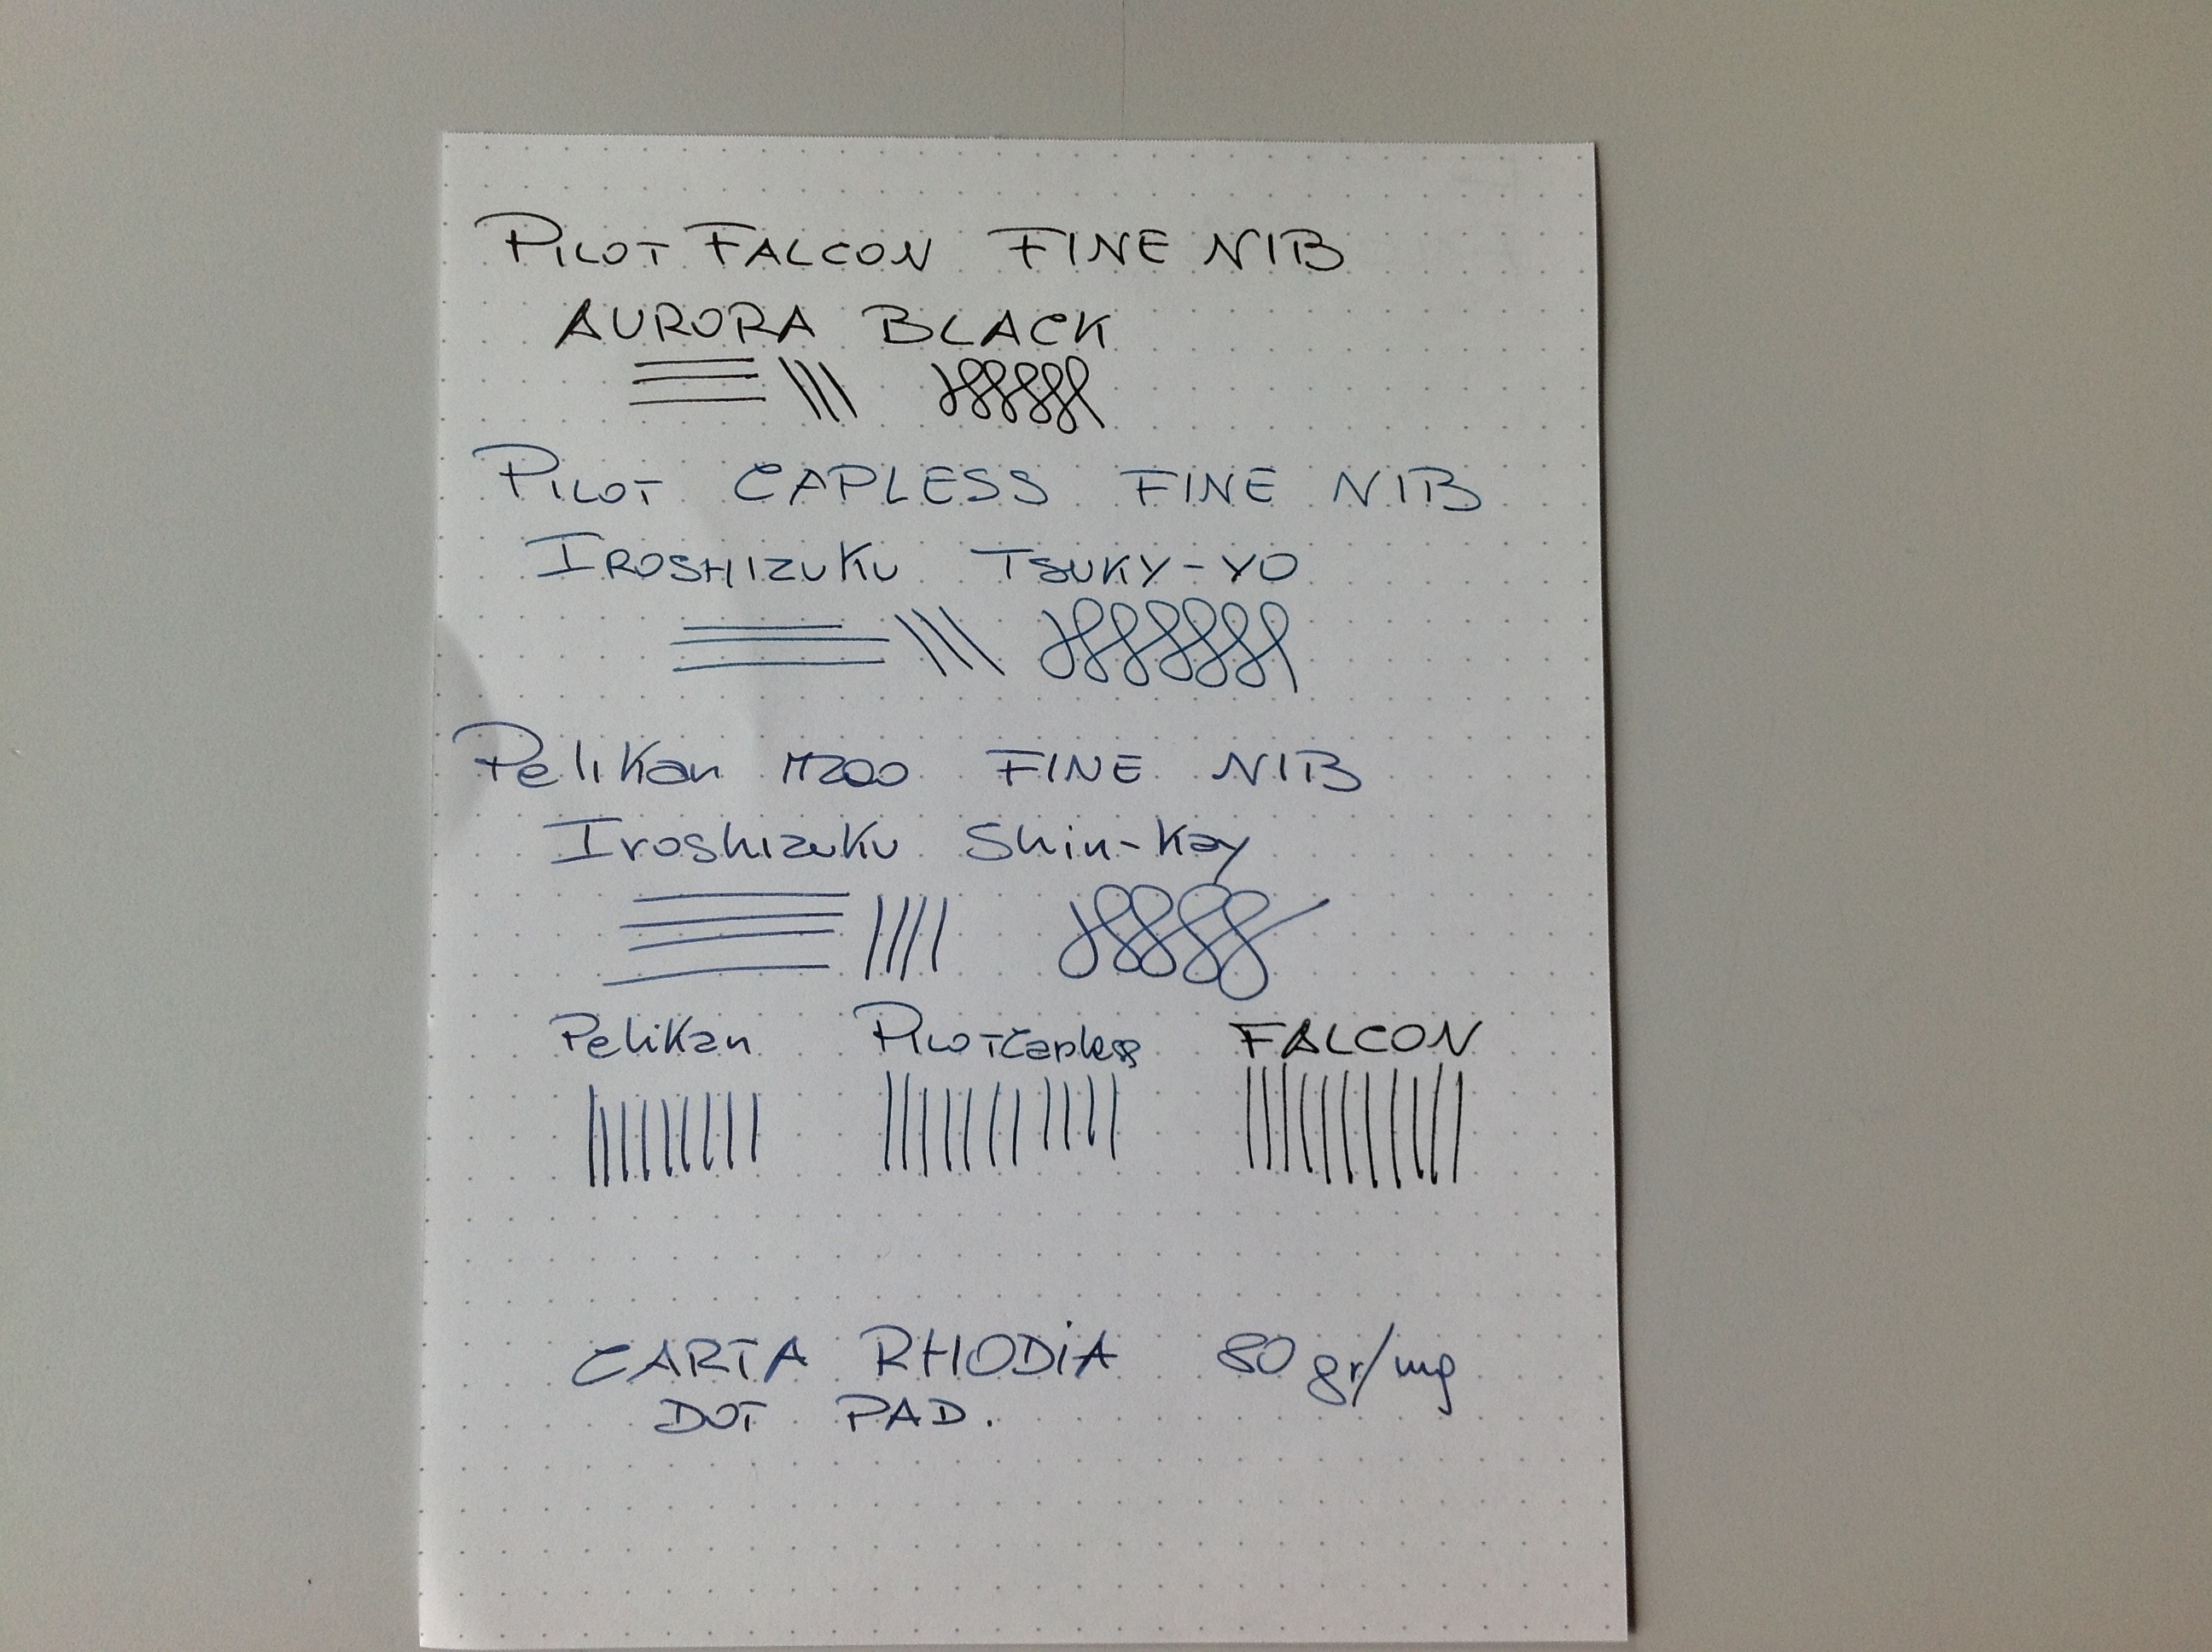 PILOT FALCON FINE NIB
AURORA BLACK
PILOT CAPLESS FINE NIB
IROSHIZUKU TSUKY-YO
Pelikan M200 FINE NIB
Iroshizuku Shin-Kay
Pelikan PILOT Capless FALCON
CARTA RHODiA 80 gr/mq
DOT PAD.